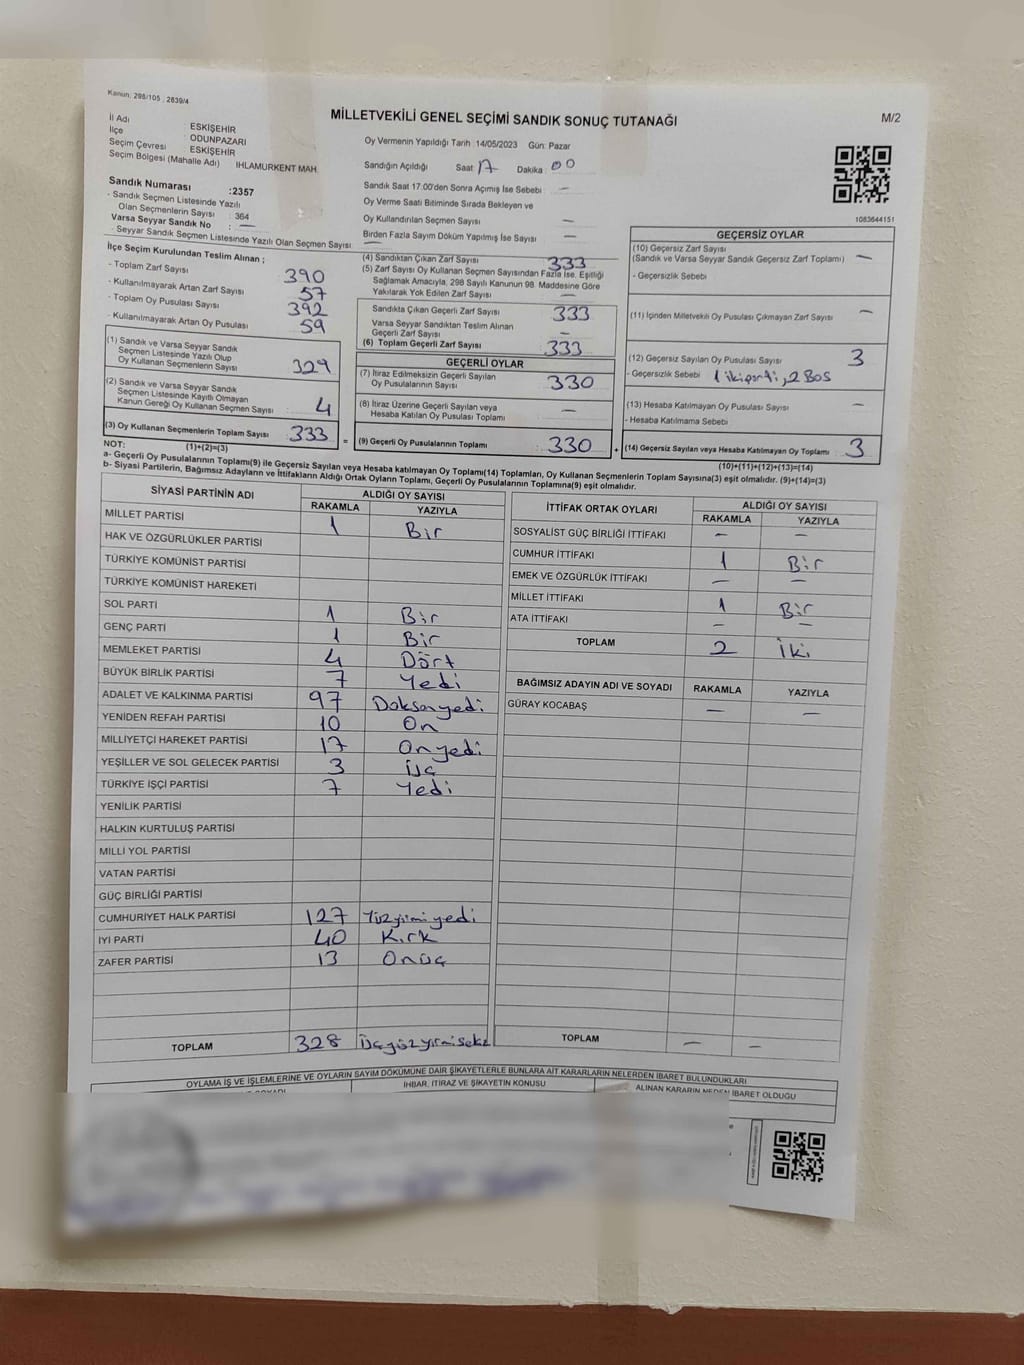 Kanun: 298/105 , 2839/4
MİLLETVEKİLİ GENEL SEÇİMİ SANDIK SONUÇ TUTANAĞI
M/2
İl Adı : ESKİŞEHİR
İlçe : ODUNPAZARI
Seçim Çevresi : ESKİŞEHİR
Seçim Bölgesi (Mahalle Adı) IHLAMURKENT MAH.
Sandık Numarası :2357
- Sandık Seçmen Listesinde Yazılı
Olan Seçmenlerin Sayısı : 364
Varsa Seyyar Sandık No : —
- Seyyar Sandık Seçmen Listesinde Yazılı Olan Seçmen Sayısı: —
Oy Vermenin Yapıldığı Tarih :14/05/2023 Gün: Pazar
Sandığın Açıldığı Saat : 17 Dakika : 00
Sandık Saat 17.00'den Sonra Açımış İse Sebebi : —
Oy Verme Saati Bitiminde Sırada Bekleyen ve
Oy Kullandırılan Seçmen Sayısı : —
Birden Fazla Sayım Döküm Yapılmış İse Sayısı : —
1083644151
İlçe Seçim Kurulundan Teslim Alınan ;
- Toplam Zarf Sayısı : 390
- Kullanılmayarak Artan Zarf Sayısı : 57
- Toplam Oy Pusulası Sayısı : 392
- Kullanılmayarak Artan Oy Pusulası : 59
(1) Sandık ve Varsa Seyyar Sandık
Seçmen Listesinde Yazılı Olup
Oy Kullanan Seçmenlerın Sayısı : 329
(2) Sandık ve Varsa Seyyar Sandık
Seçmen Listesinde Kayıtlı Olmayan
Kanun Gereği Oy Kullanan Seçmen Sayısı : 4
(3) Oy Kullanan Seçmenlerin Toplam Sayısı : 333
(1)+(2)=(3)
(4) Sandıktan Çıkan Zarf Sayısı : 333
(5) Zarf Sayısı Oy Kullanan Seçmen Sayısından Fazla İse, Eşitliği
Sağlamak Amacıyla, 298 Sayılı Kanunun 98. Maddesine Göre
Yakılarak Yok Edilen Zarf Sayısı : —
Sandıkta Çıkan Geçerli Zarf Sayısı : 333
Varsa Seyyar Sandıktan Teslim Alınan
Geçerli Zarf Sayısı : —
(6) Toplam Geçerli Zarf Sayısı : 333
GEÇERLİ OYLAR
(7) İtiraz Edilmeksizin Geçerli Sayılan
Oy Pusulalarının Sayısı : 330
(8) İtiraz Üzerine Geçerli Sayılan veya
Hesaba Katılan Oy Pusulası Toplamı : —
= (9) Geçerli Oy Pusulalarının Toplamı : 330
GEÇERSİZ OYLAR
(10) Geçersiz Zarf Sayısı
(Sandık ve Varsa Seyyar Sandık Geçersiz Zarf Toplamı) : —
- Geçersizlik Sebebi :
(11) İçinden Milletvekili Oy Pusulası Çıkmayan Zarf Sayısı : —
(12) Geçersiz Sayılan Oy Pusulası Sayısı : 3
- Geçersizlik Sebebi : 1 iki parti, 2 BOS
(13) Hesaba Katılmayan Oy Pusulası Sayısı : —
- Hesaba Katılmama Sebebi :
+ (14) Geçersiz Sayılan veya Hesaba Katılmayan Oy Toplamı : 3
(10)+(11)+(12)+(13)=(14)
NOT:
a- Geçerli Oy Pusulalarının Toplamı(9) ile Geçersiz Sayılan veya Hesaba katılmayan Oy Toplamı(14) Toplamları, Oy Kullanan Seçmenlerin Toplam Sayısına(3) eşit olmalıdır. (9)+(14)=(3)
b- Siyasi Partilerin, Bağımsız Adayların ve İttifakların Aldığı Ortak Oyların Toplamı, Geçerli Oy Pusulalarının Toplamına(9) eşit olmalıdır.
SİYASİ PARTİNİN ADI ALDIĞI OY SAYISI
RAKAMLA YAZIYLA
MİLLET PARTİSİ 1 Bir
HAK VE ÖZGÜRLÜKLER PARTİSİ
TÜRKİYE KOMÜNİST PARTİSİ
TÜRKİYE KOMÜNİST HAREKETİ
SOL PARTİ 1 Bir
GENÇ PARTİ 1 Bir
MEMLEKET PARTİSİ 4 Dört
BÜYÜK BİRLİK PARTİSİ 7 Yedi
ADALET VE KALKINMA PARTİSİ 97 Doksanyedi
YENİDEN REFAH PARTİSİ 10 On
MİLLİYETÇİ HAREKET PARTİSİ 17 Onyedi
YEŞİLLER VE SOL GELECEK PARTİSİ 3 üç
TÜRKİYE İŞÇİ PARTİSİ 7 Yedi
YENİLİK PARTİSİ
HALKIN KURTULUŞ PARTİSİ
MİLLİ YOL PARTİSİ
VATAN PARTİSİ
GÜÇ BİRLİĞİ PARTİSİ
CUMHURİYET HALK PARTİSİ 127 Yüzyirmiyedi
İYİ PARTİ 40 Kırk
ZAFER PARTİSİ 13 Onüç
TOPLAM 328 Üçyüzyirmisekiz
İTTİFAK ORTAK OYLARI ALDIĞI OY SAYISI
RAKAMLA YAZIYLA
SOSYALİST GÜÇ BİRLİĞİ İTTİFAKI — —
CUMHUR İTTİFAKI 1 Bir
EMEK VE ÖZGÜRLÜK İTTİFAKI — —
MİLLET İTTİFAKI 1 Bir
ATA İTTİFAKI — —
TOPLAM 2 İki
BAĞIMSIZ ADAYIN ADI VE SOYADI RAKAMLA YAZIYLA
GÜRAY KOCABAŞ — —
TOPLAM — —
OYLAMA İŞ VE İŞLEMLERİNE VE OYLARIN SAYIM DÖKÜMÜNE DAİR ŞİKAYETLERLE BUNLARA AİT KARARLARIN NELERDEN İBARET BULUNDUKLARI
İHBAR, İTİRAZ VE ŞİKAYETİN KONUSU
ALINAN KARARIN NEDEN İBARET OLDUĞU